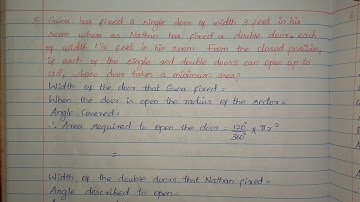 5. Guna has fixed a single door of width 3 feet in his
room where as Nathan has fixed a double door, each
of width 1½ feet in his room. From the closed position,
if each of the single and double doors can open up to
120°, whose door takes a minimum area?
Width of the door that Guna fixed =
When the door is open the radius of the sector =
Angle covered =
∴ Area required to open the door = 120°/360° × πr²
=
Width of the double doors that Nathan fixed =
Angle described to open =